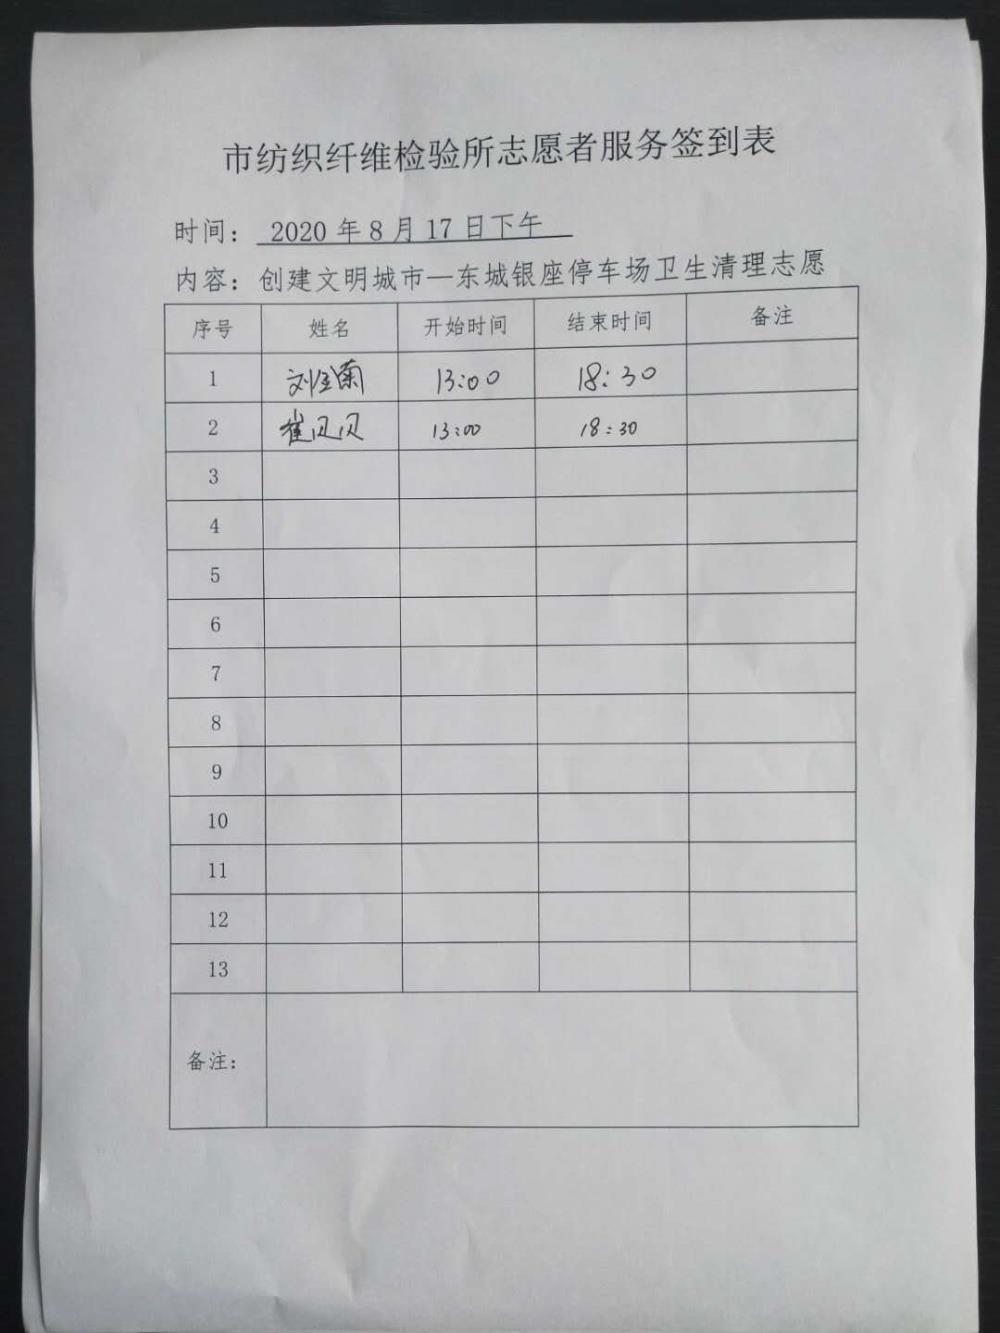 市纺织纤维检验所志愿者服务签到表
时间：2020 年 8 月 17 日下午
内容：创建文明城市—东城银座停车场卫生清理志愿
序号 姓名 开始时间 结束时间 备注
1 刘金菊 13:00 18:30
2 崔贝贝 13:00 18:30
3
4
5
6
7
8
9
10
11
12
13
备注：